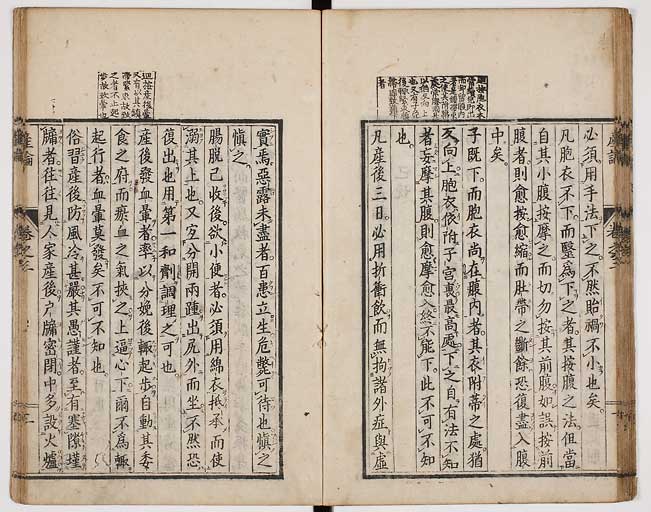 必須用手法下之不然貽禍不小也矣
凡胞衣不下而醫爲下之者其按腹之法但當
自其小腹按摩之而切勿按其前腹如誤按前
腹者則愈按愈縮而肚帶之斷餘恐復盡入腹
中矣
子既下而胞衣尚在腹內者其衣附蒂之處猶
又向上胞衣依附子宮裏最高處下之自有法不知
者妄摩其腹則愈摩愈入終不能下此不可不知
也
凡産後三日必用折衝飲而無拘諸外症與虛
實焉惡露未盡者百患立生危斃可待也愼之
愼之
腸脫已收後欲小便者必須用綿衣抵承而使
溺其上也又宜分開兩踵出尻外而坐不然恐
復出也用第一和劑調理之可也
産後發血暈者率以分娩後輙起步自動其委
食之府而瘀血之氣挾之上逼心下爾不爲輙
起行者血暈莫發矣不可不知也
俗習産後防風冷甚嚴其愚謹者至有塞隙墐
牖者往往見人家産後戶牖密閉中多設火爐
産論
卷之二